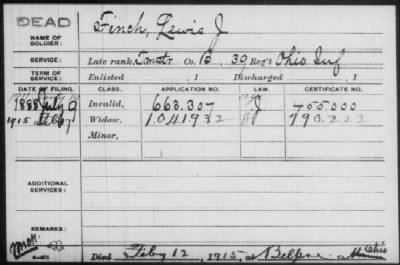 DEAD
NAME OF SOLDIER: Finch, Lewis J
SERVICE: Late rank, Tmstr Co. B, 39 Reg't Ohio Inf
TERM OF SERVICE: Enlisted , 1 Discharged , 1
DATE OF FILING. CLASS. APPLICATION NO. LAW. CERTIFICATE NO.
1888 July 9 Invalid, 663.307 J 455.000
1915 Feb 17 Widow, 1.041.932 790.222
Minor,
ADDITIONAL SERVICES:
REMARKS:
Died Feby 12, 1915, at Belpre Ohio